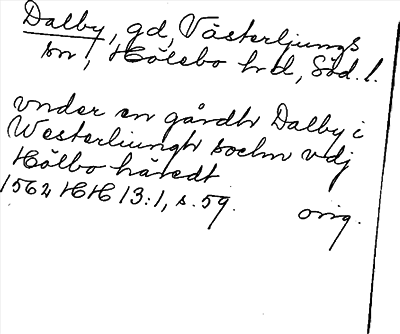 Dalby, gd, Västerljungs
sn, Hölebo hd, Söd. l.
vnder en gårdh Dalby i
Westerliungh sochn vdj
Hölbo häredt
1562 HH 13:1, s. 59. orig.